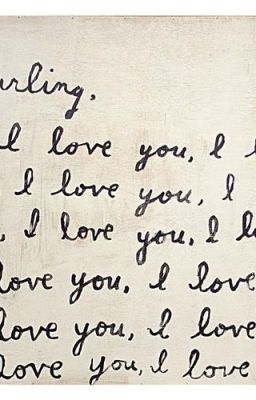 arling,
I love you, I l
I love you, I
, I love you, I lo
love you, I love
love you, I love
love you, I love